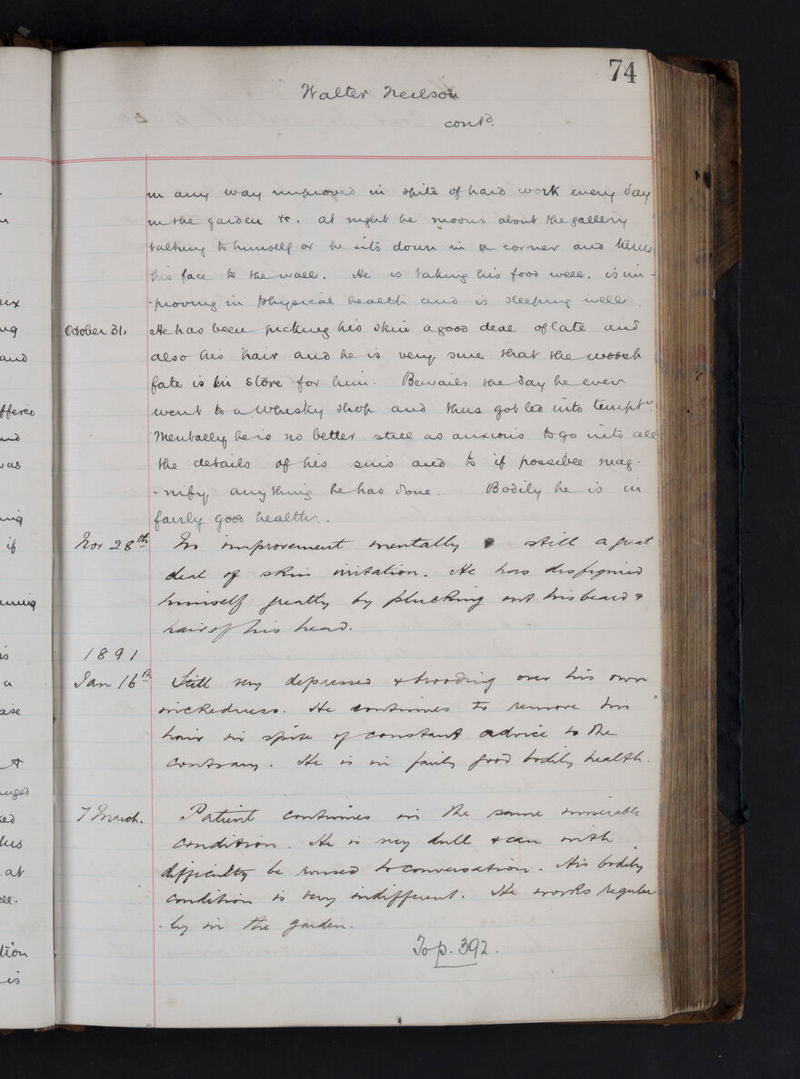 74
Walter Neilson
contd.
in any way improved in spite of hard work every day
in the garden &c. at night he moons about the gallery
talking to himself or he sits down in a corner and turns
his face to the wall. He is taking his food well, is im-
-proving in physical health and is sleeping well.
October 31, He has been picking his skin a good deal of late and
also his hair and he is very sure that the worst
fate is in store for him. Bewails the day he ever
went to a whisky shop and thus got led into temptn.
Mentally he is no better still as anxious to go into all
the details of his sins and to if possible mag-
-nify any thing he has done. Bodily he is in
fairly good health.
Nov 28th No improvement mentally still a great
deal of skin irritation. He has disfigured
himself greatly by plucking out his beard &
hair of his head.
1891
Jan 16th Still very depressed & brooding over his own
wickedness. He continues to remove his
hair in spite of constant advice to the
contrary. He is in fairly good bodily health.
7 March. Patient continues in the same miserable
condition. He is very dull & can with
difficulty be roused to conversation. His bodily
condition is very indifferent. He works regular-
-ly in the garden.
To p. 392.